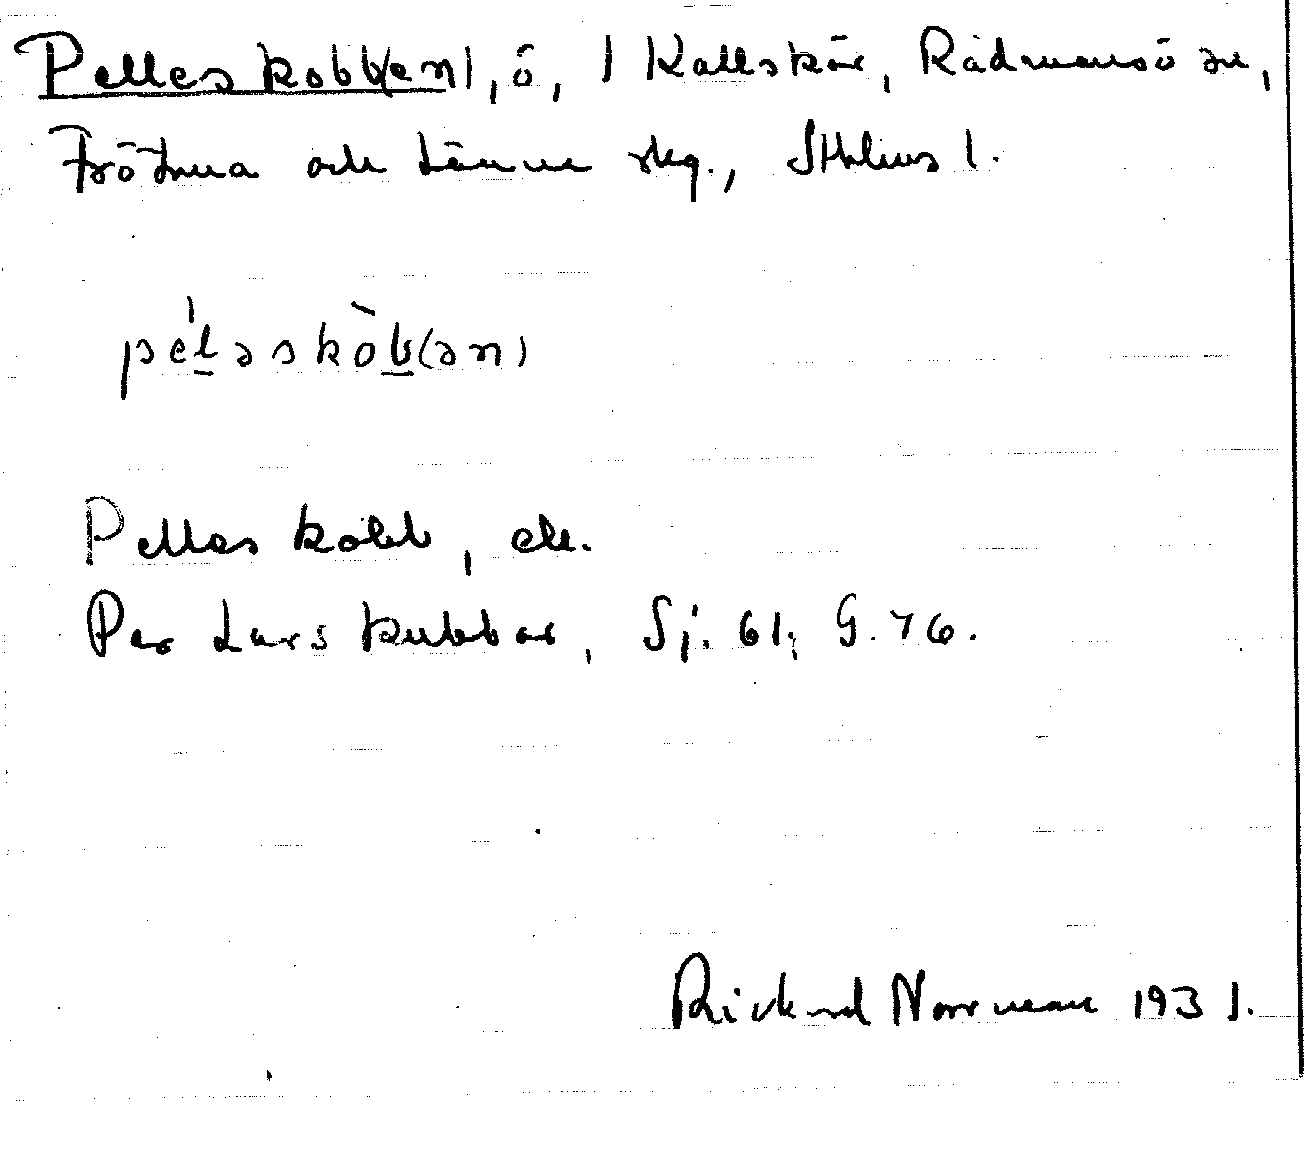 Pelleskobb(en), ö, 1 Kallskär, Rådmansö sn,
Frötuna och Länna skg., Sthlms l.
pélləskòb(ən)
Pelles kobb, ek.
Per Lars kubbar, Sj. 61; G. 76.
Rickard Norrman 1931.